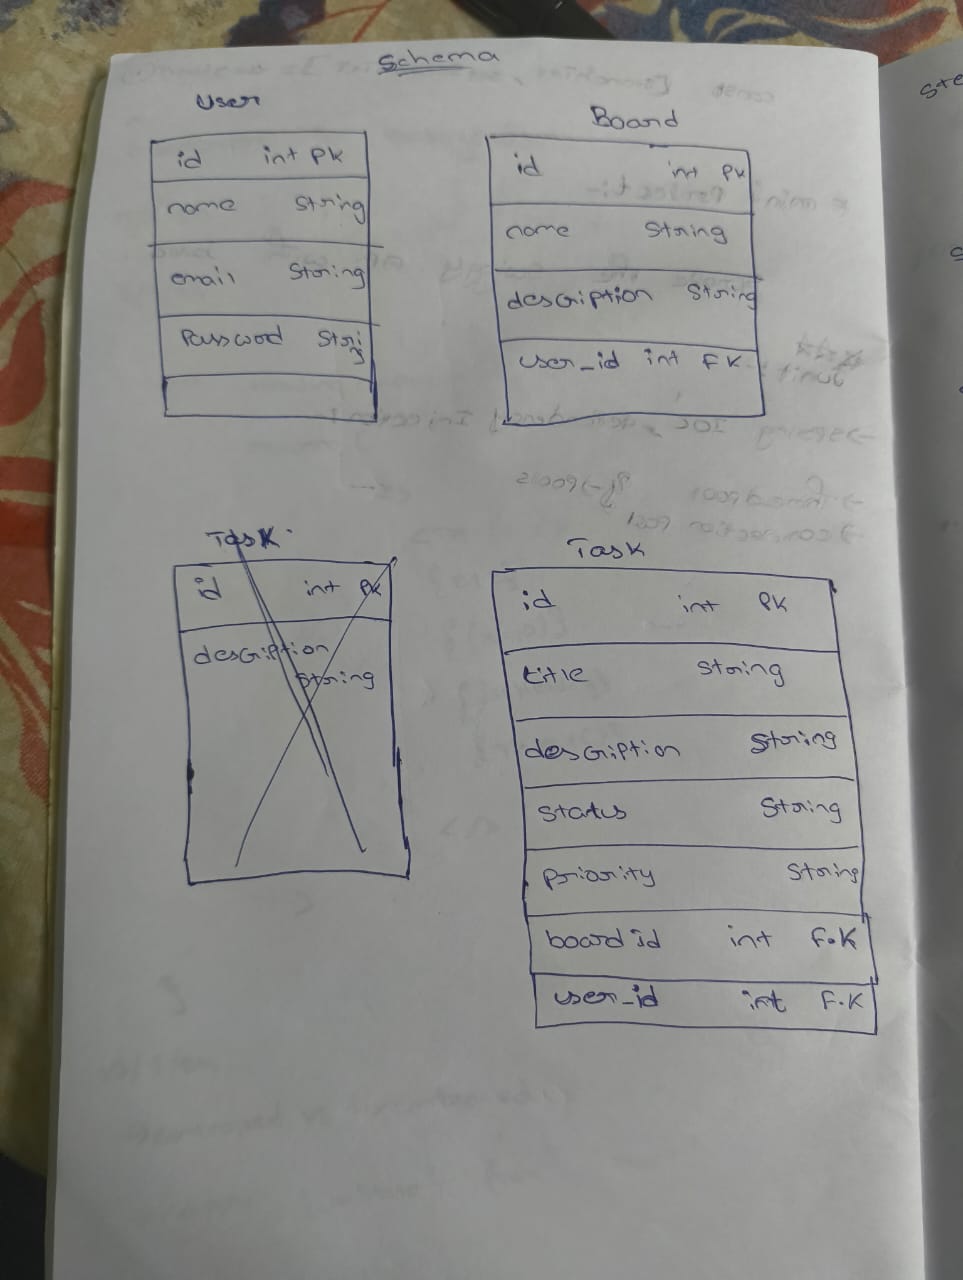 Schema
User
id int PK
name String
email String
Password String
Board
id int PK
name String
description String
user_id int FK
Task
id int PK
description
String
Task
id int PK
title String
description String
status String
Priority String
board id int F.K
user_id int F.K